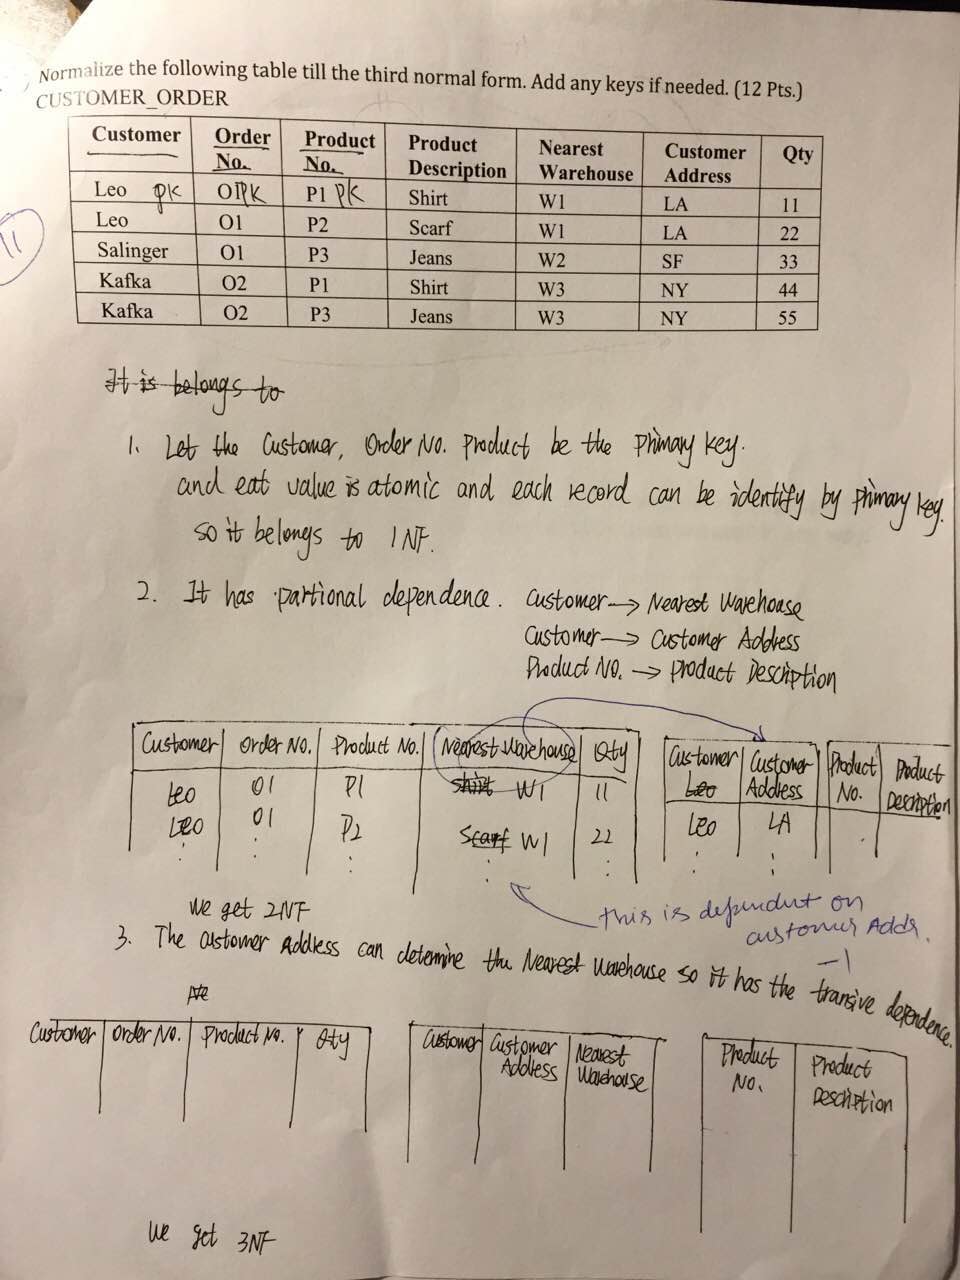 Normalize the following table till the third normal form. Add any keys if needed. (12 Pts.)
CUSTOMER_ORDER
Customer Order No. Product No. Product Description Nearest Warehouse Customer Address Qty
Leo PK O1 PK P1 PK Shirt W1 LA 11
Leo O1 P2 Scarf W1 LA 22
11
Salinger O1 P3 Jeans W2 SF 33
Kafka O2 P1 Shirt W3 NY 44
Kafka O2 P3 Jeans W3 NY 55
It is belongs to
1. Let the Customer, Order No. Product be the Primary key.
and eat value is atomic and each record can be identify by Primary key.
so it belongs to 1NF.
2. It has partional dependence. Customer → Nearest Warehouse
Customer → Customer Address
Product No. → Product Description
Customer Order No. Product No. Nearest Warehouse Qty
Leo O1 P1 Shirt W1 11
Leo O1 P2 Scarf W1 22
Customer Customer Address
Leo
Leo LA
Product No. Product Description
We get 2NF
This is dependent on
customer Addr.
-1
3. The Customer Address can determine the Nearest Warehouse so it has the transive dependence.
Customer Order No. Product No. Qty
Customer Customer Address Nearest Warehouse
Product No. Product Description
We get 3NF